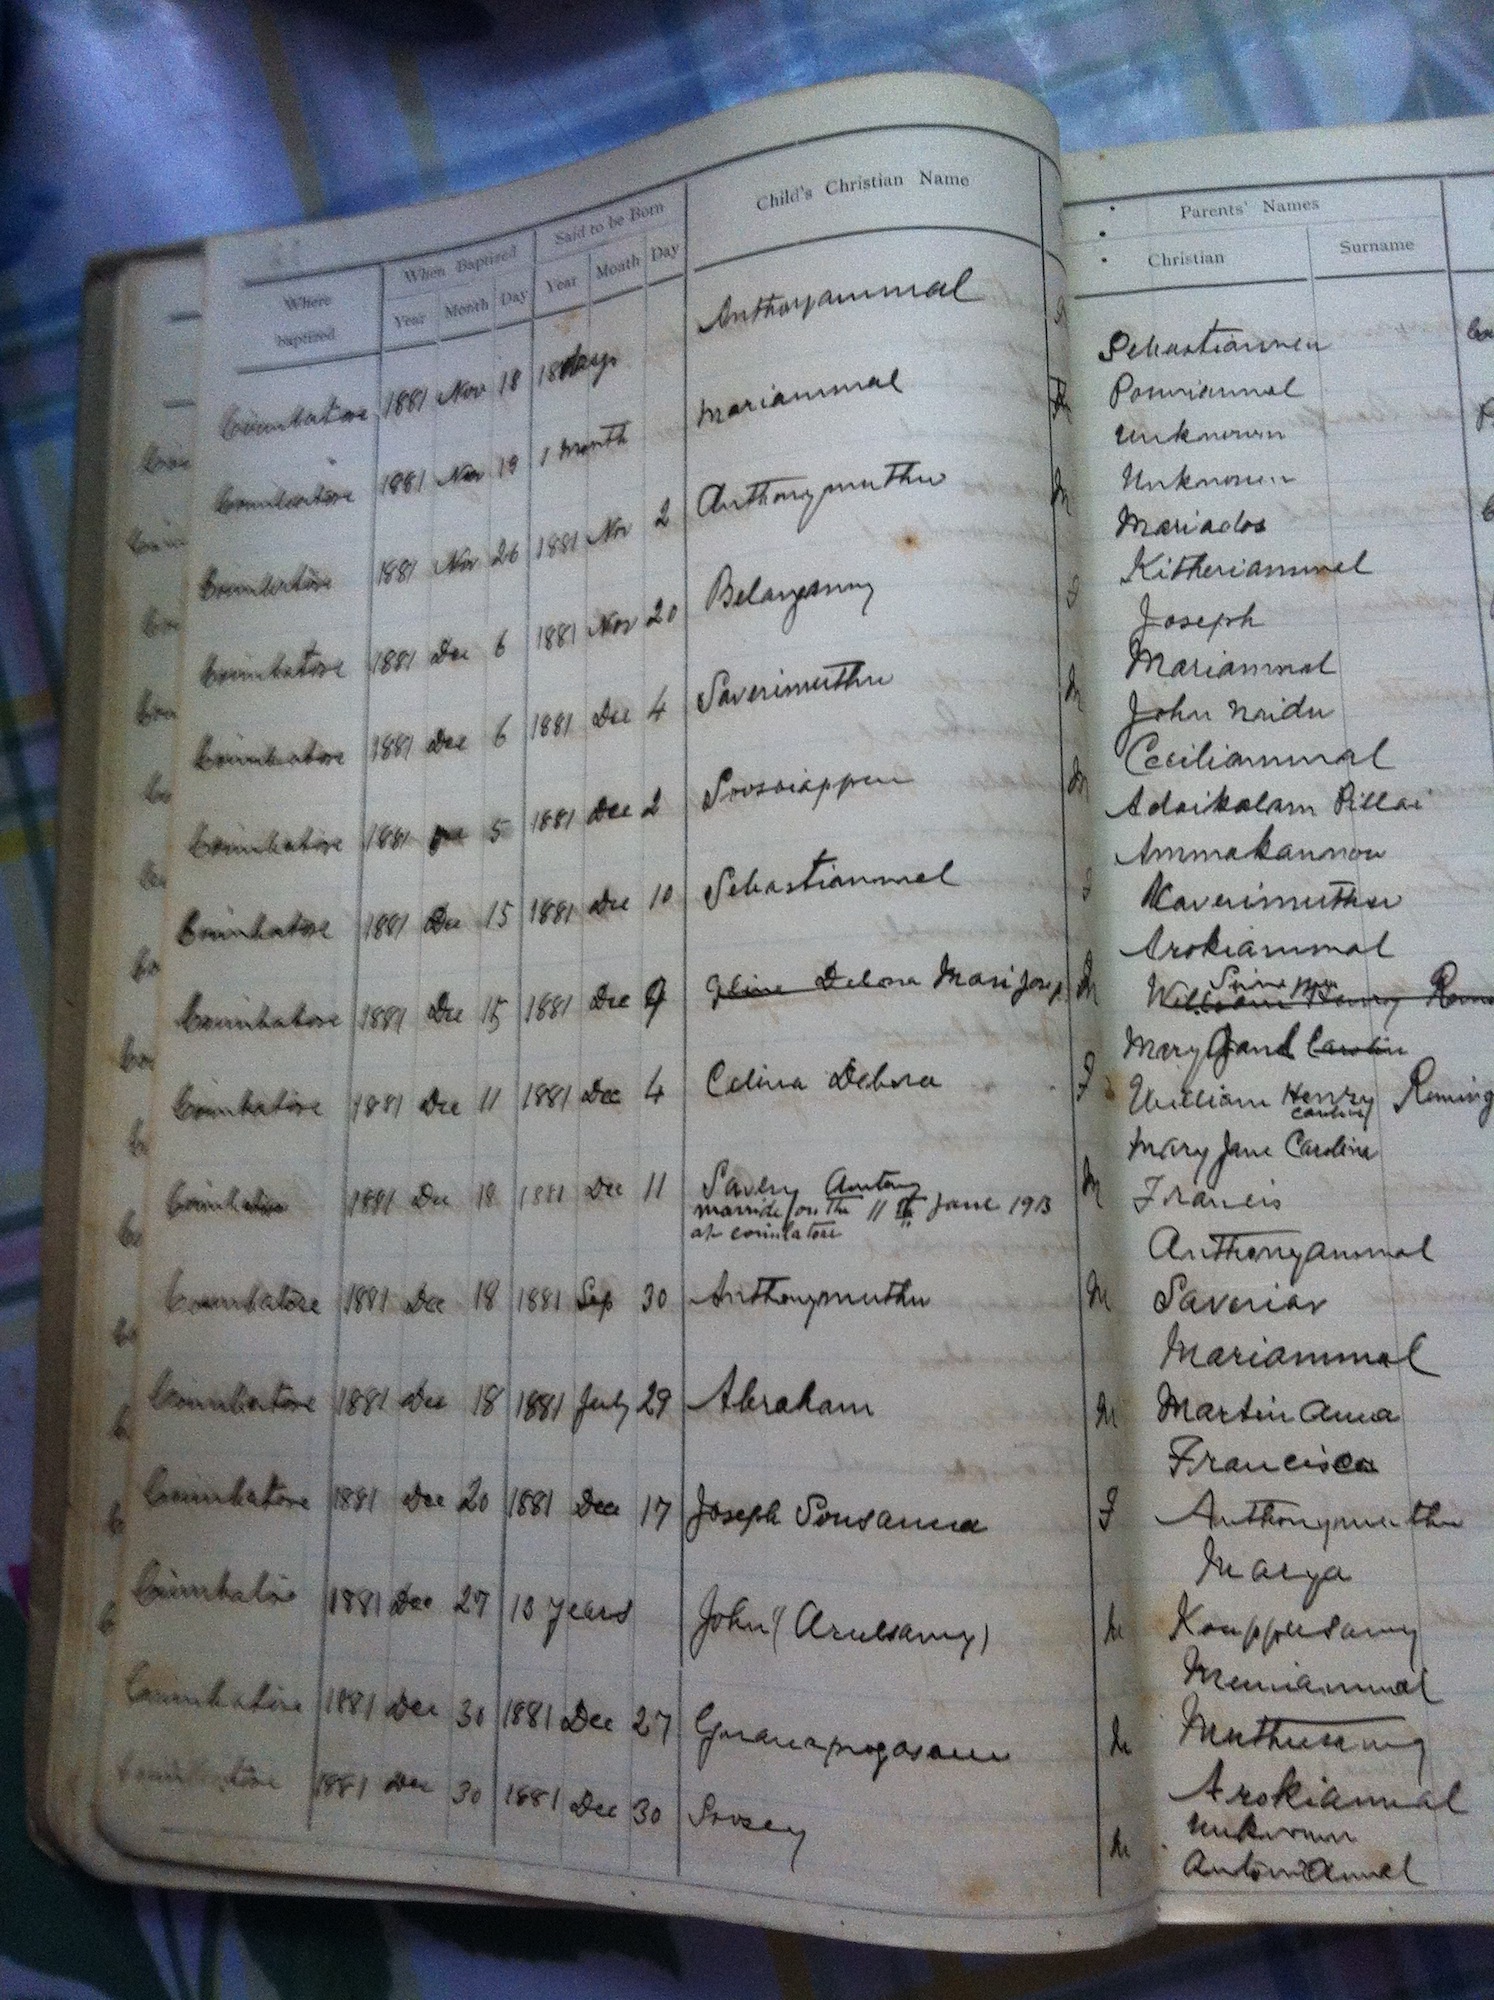 Where baptized When Baptized Said to be Born Child's Christian Name Parents' Names
Year Month Day Year Month Day Christian Surname
Coimbatore 1881 Nov 18 18 days Anthonyammal
Sebastiannen
Ponniammal
Coimbatore 1881 Nov 19 1 Month Mariammal
Unknown
Unknown
Coimbatore 1881 Nov 26 1881 Nov 2 Anthonymuthu M
Mariados
Kitheriammal
Coimbatore 1881 Dec 6 1881 Nov 20 Belanganny F
Joseph
Mariammal
Coimbatore 1881 Dec 6 1881 Dec 4 Saverimuthu M
John Naidu
Ceciliammal
Coimbatore 1881 Dec 5 1881 Dec 2 Soosaiappen M
Adaikalam Pillai
Ammakannou
Coimbatore 1881 Dec 15 1881 Dec 10 Sebastiammal F
Xaverimuthu
Arokiammal
Coimbatore 1881 Dec 15 1881 Dec 9 Debora Mari Josep M
William Henry
Mary Jane Carolin
Coimbatore 1881 Dec 11 1881 Dec 4 Celina Debora F
William Henry Reming
Mary Jane Carolina
Coimbatore 1881 Dec 18 1881 Dec 11 Savery Antony M
marride on the 11th June 1913
at coimbatore
Francis
Anthonyammal
Coimbatore 1881 Dec 18 1881 Sep 30 Anthonymuthu M
Saveriar
Mariammal
Coimbatore 1881 Dec 18 1881 July 29 Abraham M
Martin Anna
Francisca
Coimbatore 1881 Dec 20 1881 Dec 17 Joseph Sousanna F
Anthonymuthu
Marya
Coimbatore 1881 Dec 27 13 years John (Arulsamy) M
Kouppusamy
Meniammal
Coimbatore 1881 Dec 30 1881 Dec 27 Gnanapragasam M
Muthusamy
Arokiammal
Coimbatore 1881 Dec 30 1881 Dec 30 Soosey M
Unknown
Antoniammal